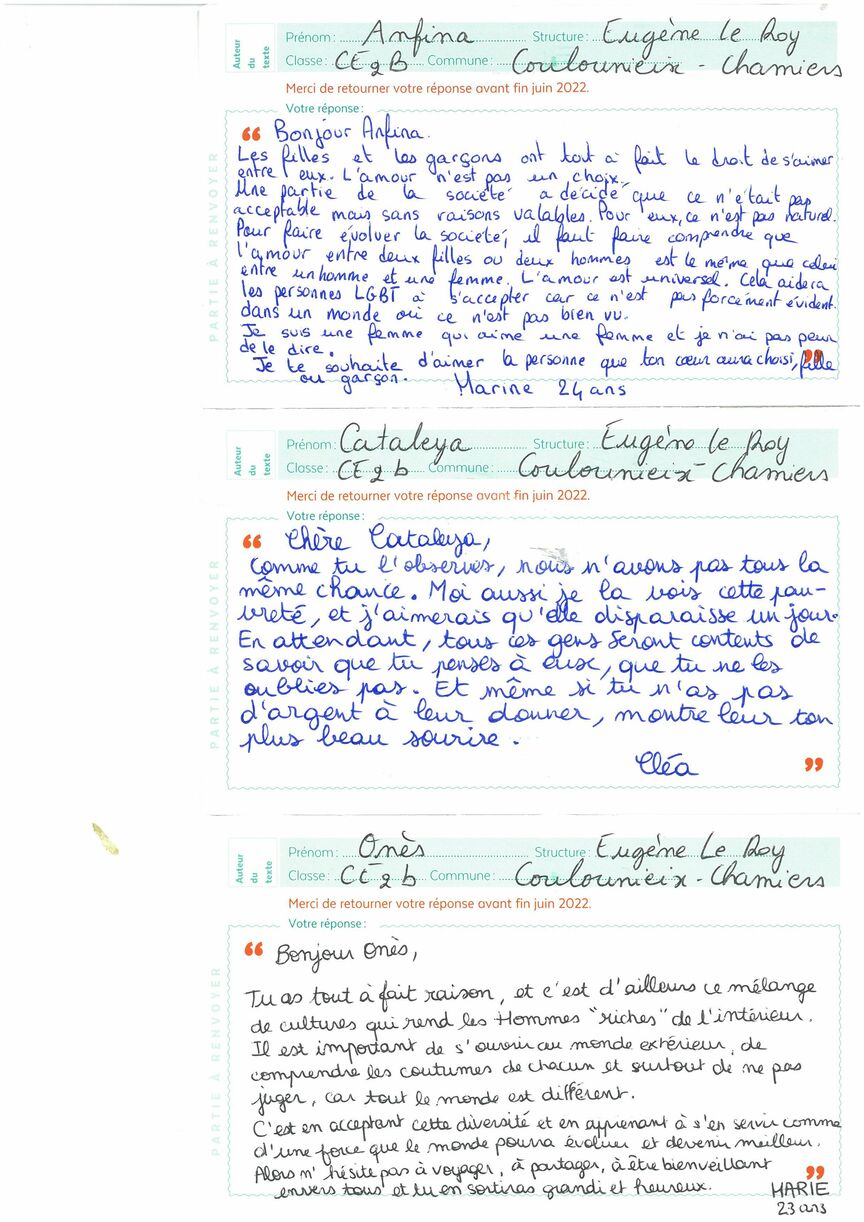 Auteur
du
texte
Prénom : Anfina Structure : Eugène Le Roy
Classe : CE2B Commune : Coulounieix - Chamiers
Merci de retourner votre réponse avant fin juin 2022.
Votre réponse :
PARTIE À RENVOYER
“ Bonjour Anfina.
Les filles et les garçons ont tout à fait le droit de s'aimer
entre eux. L'amour n'est pas un choix.
Une partie de la société a décidé que ce n'était pas
acceptable mais sans raisons valables. Pour eux, ce n'est pas naturel.
Pour faire évoluer la société, il faut faire comprendre que
l'amour entre deux filles ou deux hommes est le même que celui
entre un homme et une femme. L'amour est universel. Celà aidera
les personnes LGBT à s'accepter car ce n'est pas forcément évident
dans un monde où ce n'est pas bien vu.
Je suis une femme qui aime une femme et je n'ai pas peur
de le dire.
Je te souhaite d'aimer la personne que ton cœur aura choisi, fille ”
ou garçon. Marine 24 ans
Auteur
du
texte
Prénom : Cataleya Structure : Eugène Le Roy
Classe : CE2b Commune : Coulounieix - Chamiers
Merci de retourner votre réponse avant fin juin 2022.
Votre réponse :
PARTIE À RENVOYER
“ Chère Cataleya,
Comme tu l'observes, nous n'avons pas tous la
même chance. Moi aussi je la vois cette pau-
vreté, et j'aimerais qu'elle disparaisse un jour.
En attendant, tous ces gens seront contents de
savoir que tu penses à eux, que tu ne les
oublies pas. Et même si tu n'as pas
d'argent à leur donner, montre leur ton
plus beau sourire.
Cléa ”
Auteur
du
texte
Prénom : Onès Structure : Eugène Le Roy
Classe : CE2b Commune : Coulounieix - Chamiers
Merci de retourner votre réponse avant fin juin 2022.
Votre réponse :
PARTIE À RENVOYER
“ Bonjour Onès,
Tu as tout à fait raison, et c'est d'ailleurs ce mélange
de cultures qui rend les Hommes "riches" de l'intérieur.
Il est important de s'ouvrir au monde extérieur, de
comprendre les coutumes de chacun et surtout de ne pas
juger, car tout le monde est différent.
C'est en acceptant cette diversité et en apprenant à s'en servir comme
d'une force que le monde pourra évoluer et devenir meilleur.
Alors n'hésite pas à voyager, à partager, à être bienveillant ”
envers tous et tu en sortiras grandi et heureux. MARIE
23 ans